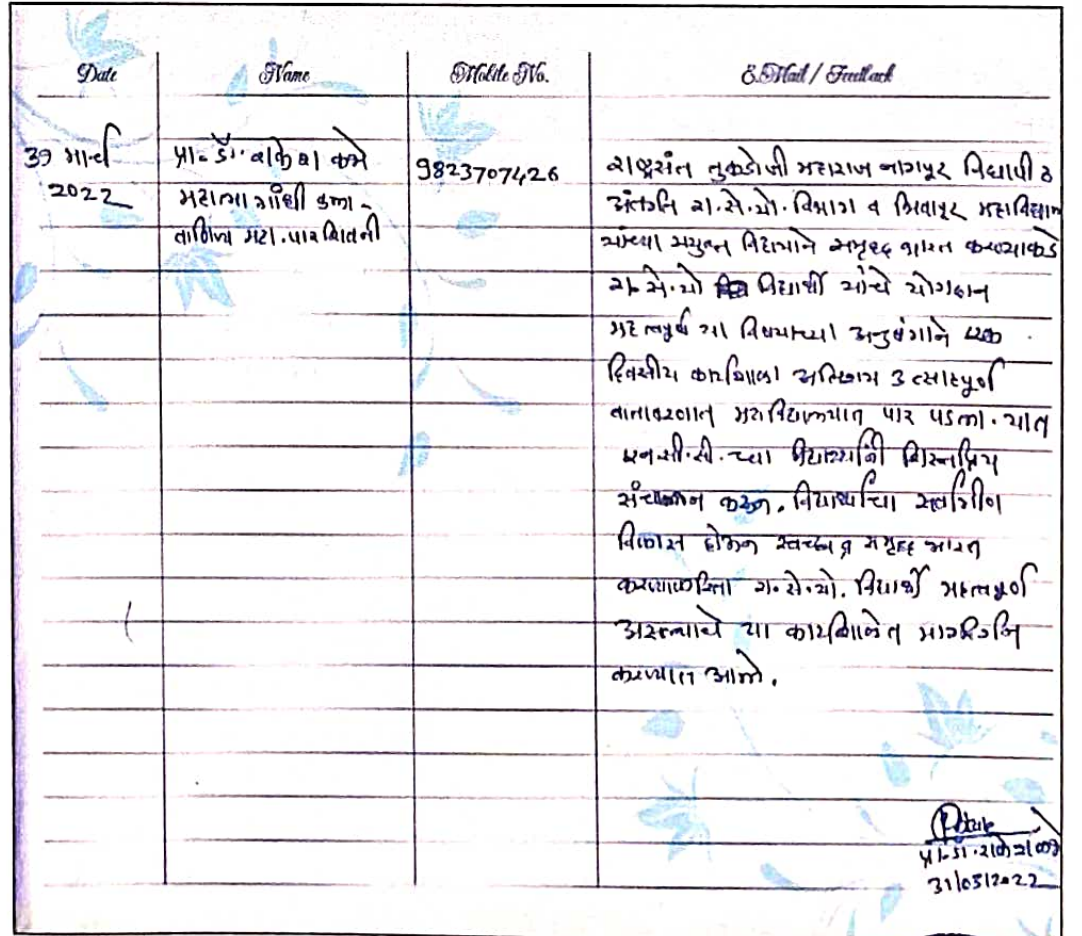 Date Name Mobile No. E.Mail / Feedback
३१ मार्च
2022
प्रा. डॉ. राकेश कभे
महात्मा गांधी कला -
वाणिज्य महा. पारशिवनी
9823707426
राष्ट्रसंत तुकडोजी महाराज नागपूर विद्यापीठ
अंतर्गत रा.से.यो. विभाग व भिवापूर महाविद्यालय
यांच्या संयुक्त विद्यमाने समृद्ध भारत करण्याकडे
रा.से.यो विद्यार्थी यांचे योगदान
महत्वपूर्ण या विषयाच्या अनुषंगाने एक
दिवसीय कार्यशाळा अतिशय उत्साहपूर्ण
वातावरणात महाविद्यालयात पार पडला. यात
एन.सी.सी.च्या विद्यार्थ्यांनी शिस्तप्रिय
संचालन करून. विद्यार्थ्यांचा सर्वांगीण
विकास होऊन स्वच्छ व समृद्ध भारत
करण्याकरिता रा.से.यो. विद्यार्थी महत्वपूर्ण
असल्याचे या कार्यशाळेत मार्गदर्शन
करण्यात आले.
प्रा.डॉ.राकेश कभे
31/03/2022